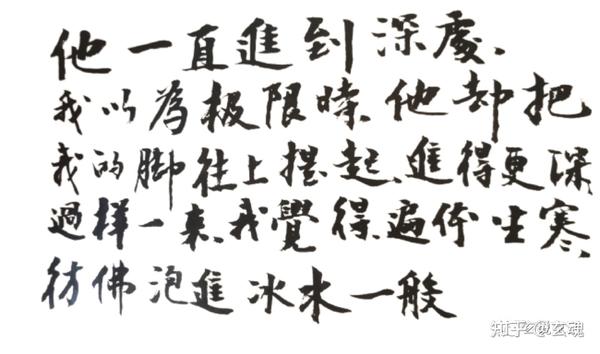 他一直進到深處、
我以為极限時、他却把
我的脚往上提起、進得更深
過样一来、我覺得、遍体生寒、
彷佛泡進冰水一般
知乎 @玄魂